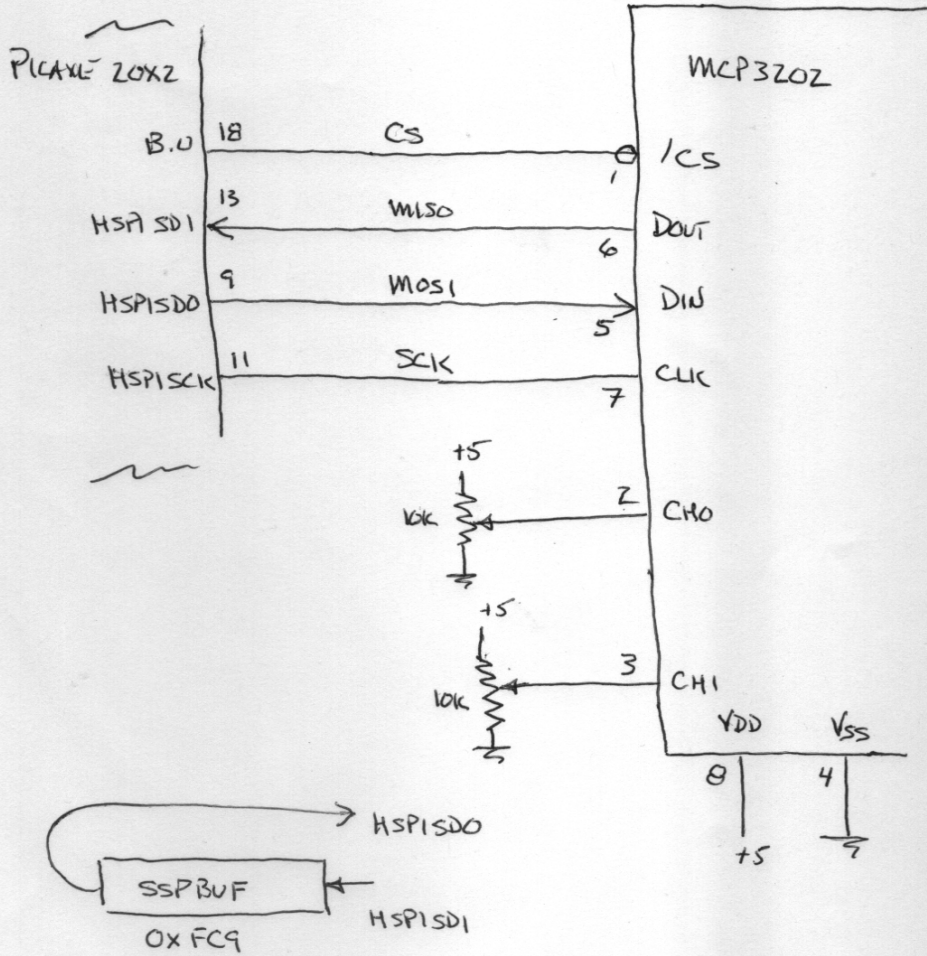 PICAXE 20X2
MCP3202
B.0 18 CS 1 /CS
HSPISDI 13 MISO 6 DOUT
HSPISDO 9 MOSI 5 DIN
HSPISCK 11 SCK 7 CLK
+5
10K 2 CH0
+5
10K 3 CH1
VDD VSS
8 4
+5
HSPISDO
SSPBUF
HSPISDI
0XFC9